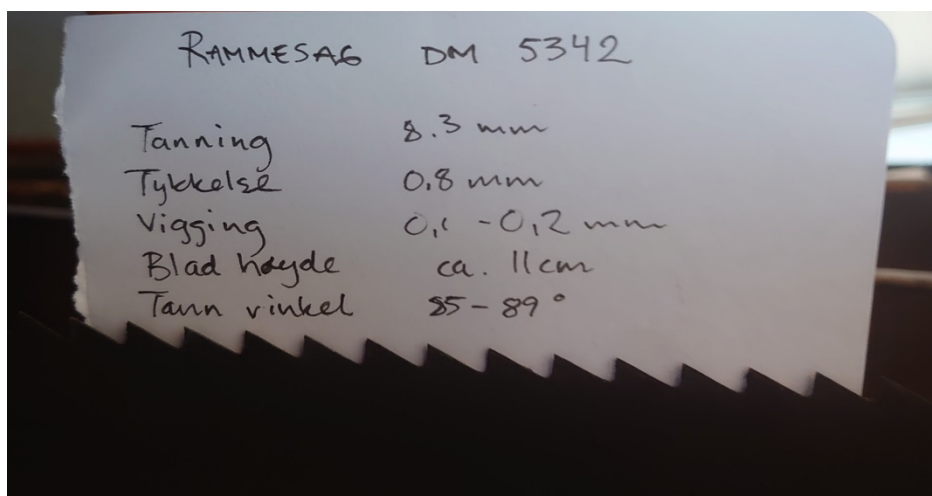 RAMMESAG DM 5342
Tanning 8.3 mm
Tykkelse 0,8 mm
Vigging 0,1 - 0,2 mm
Blad høyde ca. 11 cm
Tann vinkel 85 - 89°